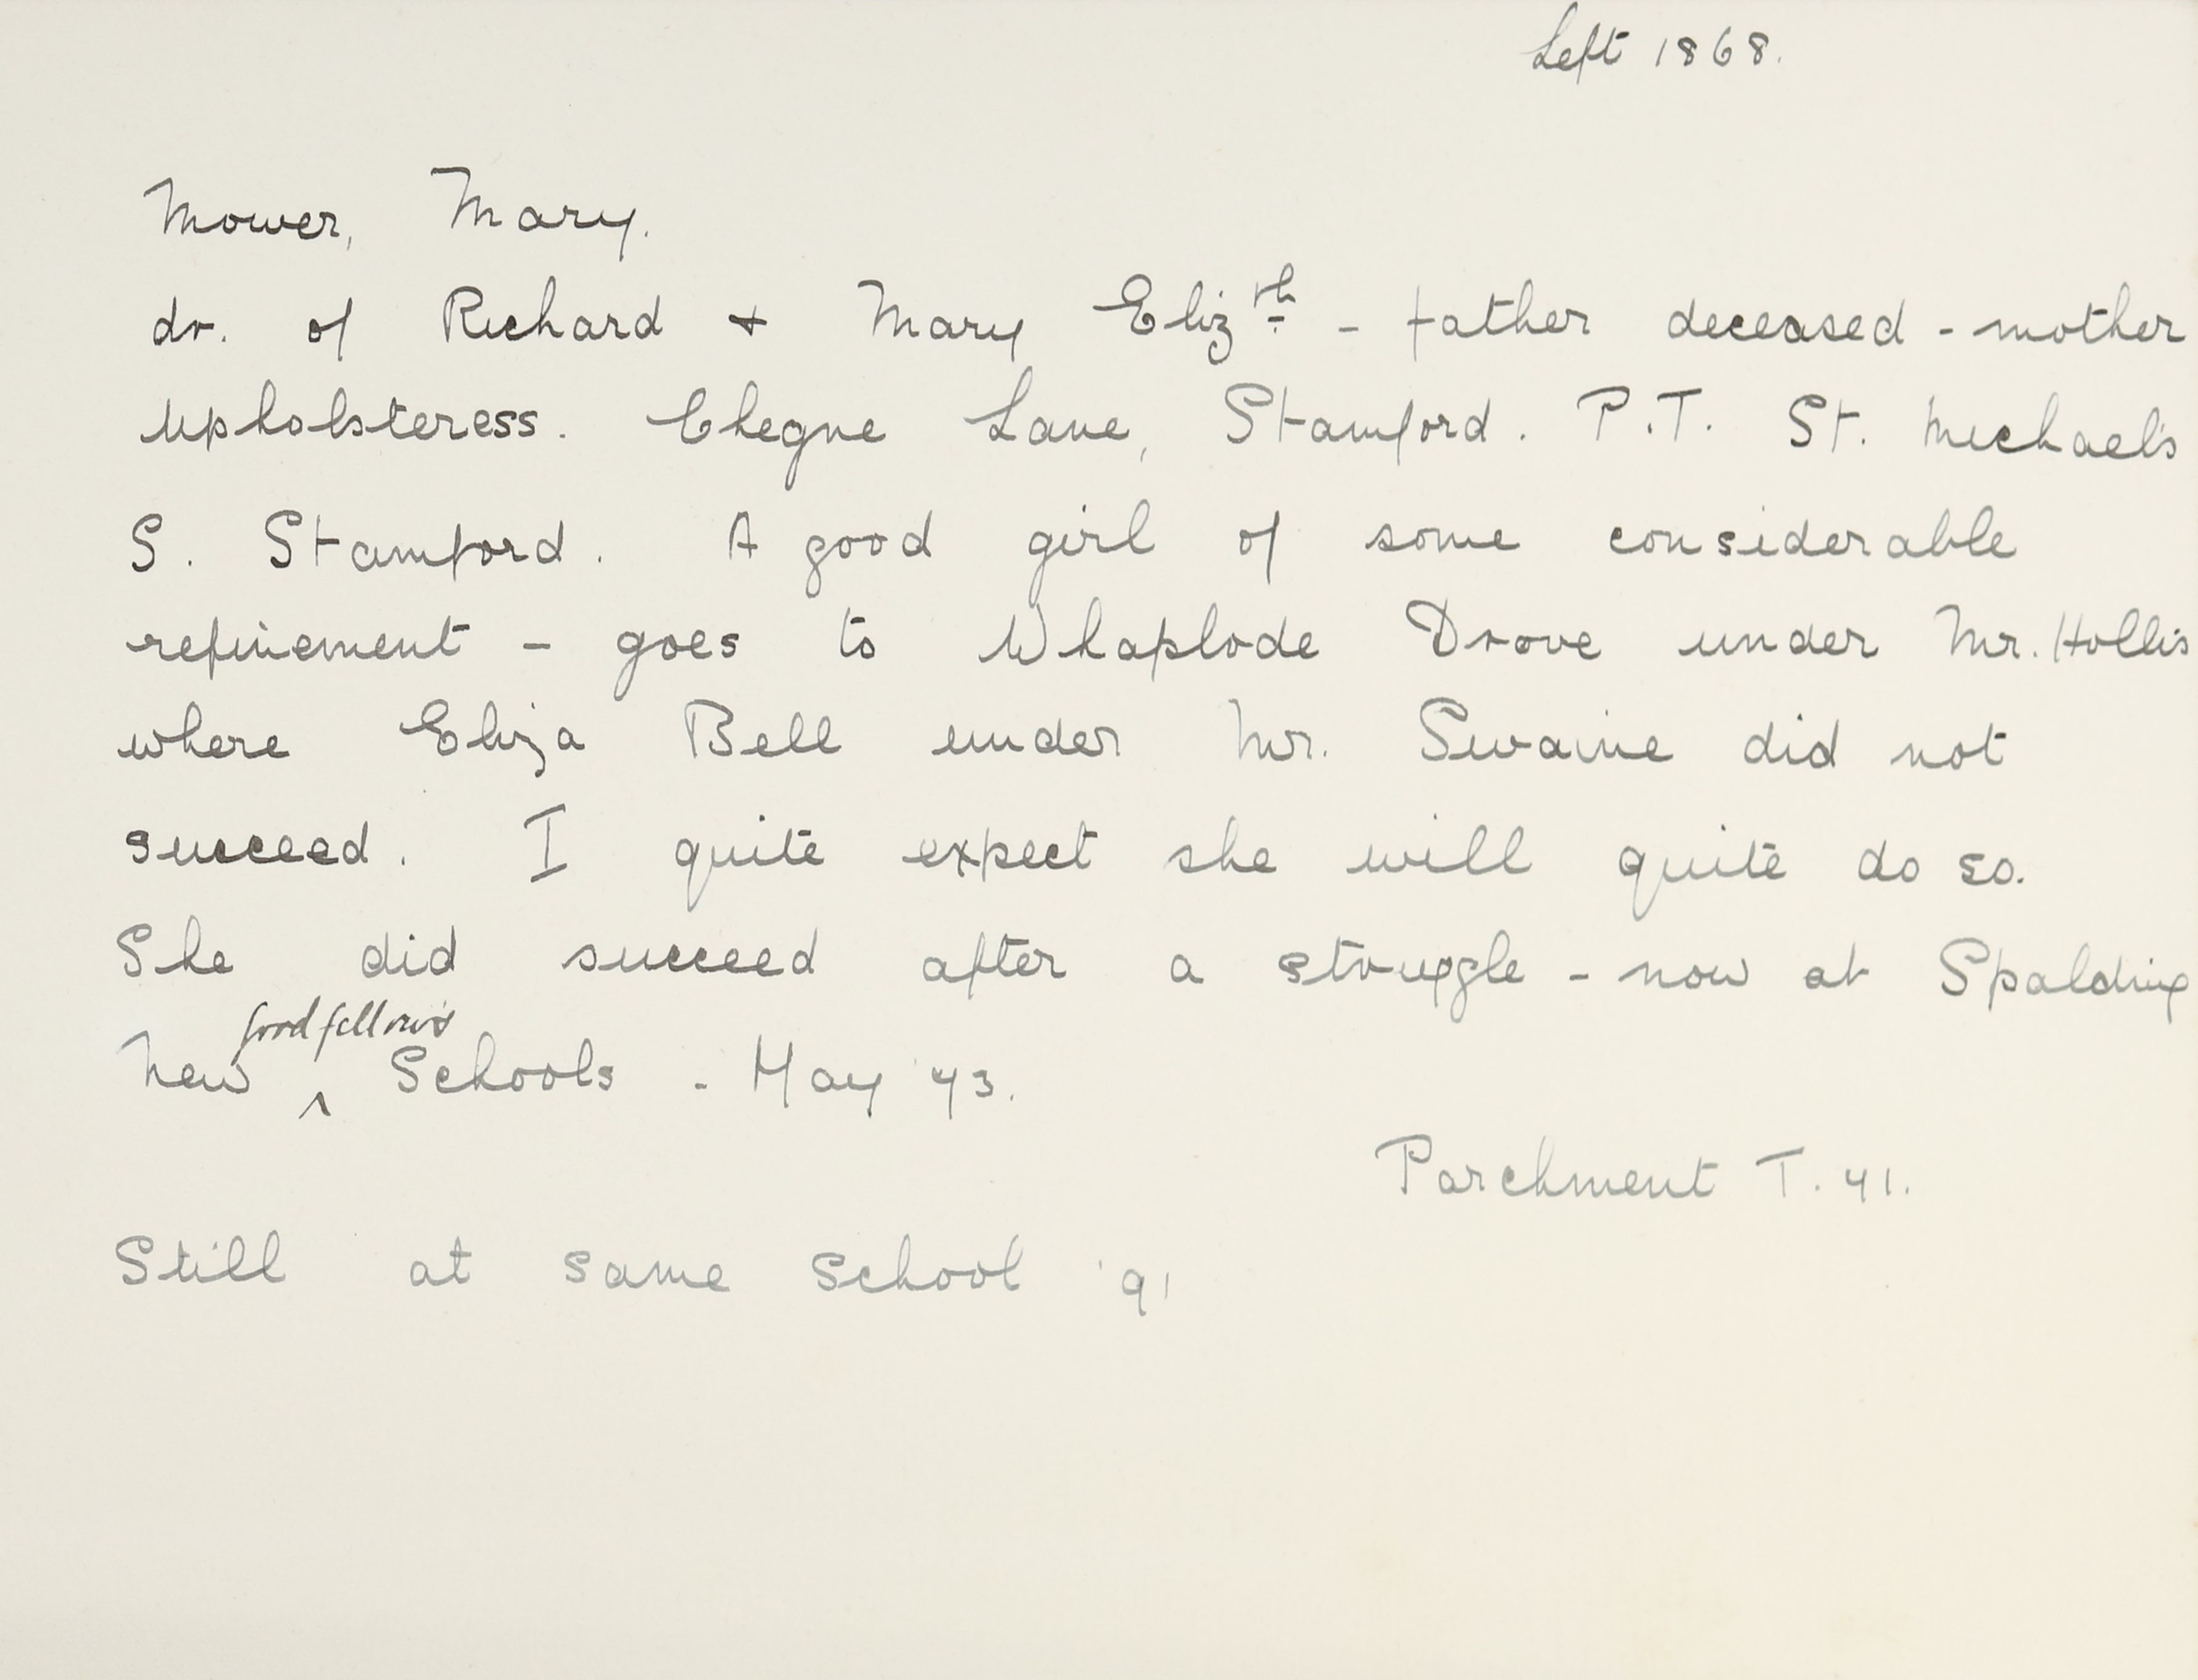 Left 1868.
Mower, Mary.
dr. of Richard + Mary Elizth - father deceased - mother
Upholsteress. Chegne Lane, Stamford. P.T. St. Michael's
S. Stamford. A good girl of some considerable
refinement - goes to Whaplode Drove under Mr. Hollis
where Eliza Bell under Mr. Swaine did not
succeed. I quite expect she will quite do so.
She did succeed after a struggle - now at Spalding
goodfellows
New ^ Schools - May '73.
Parchment T. 71.
Still at same school '91